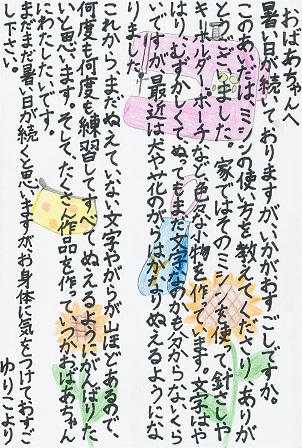 おばあちゃんへ
暑い日が続いておりますが、いかがおすごしですか。
このあいだは、ミシンの使い方を教えてくださりありが
とうございました。家ではそのミシンを使って針さしや
キーホルダー、ポーチなど色々な物を作っています。文字はや
はり、むずかしくてぬっても文字なのかも分からないくら
いですが、最近は犬や花のがらはかなりぬえるようにな
りました。
これから、まだぬえていない文字やがらが山ほどあるので、
何度も何度も練習してすべてぬえるようにがんばりた
いと思います。そして、たくさん作品を作っていつかおばあちゃん
にわたしたいです。
まだまだ暑い日が続くと思いますがお身体に気をつけておすご
し下さい。
ゆりこより